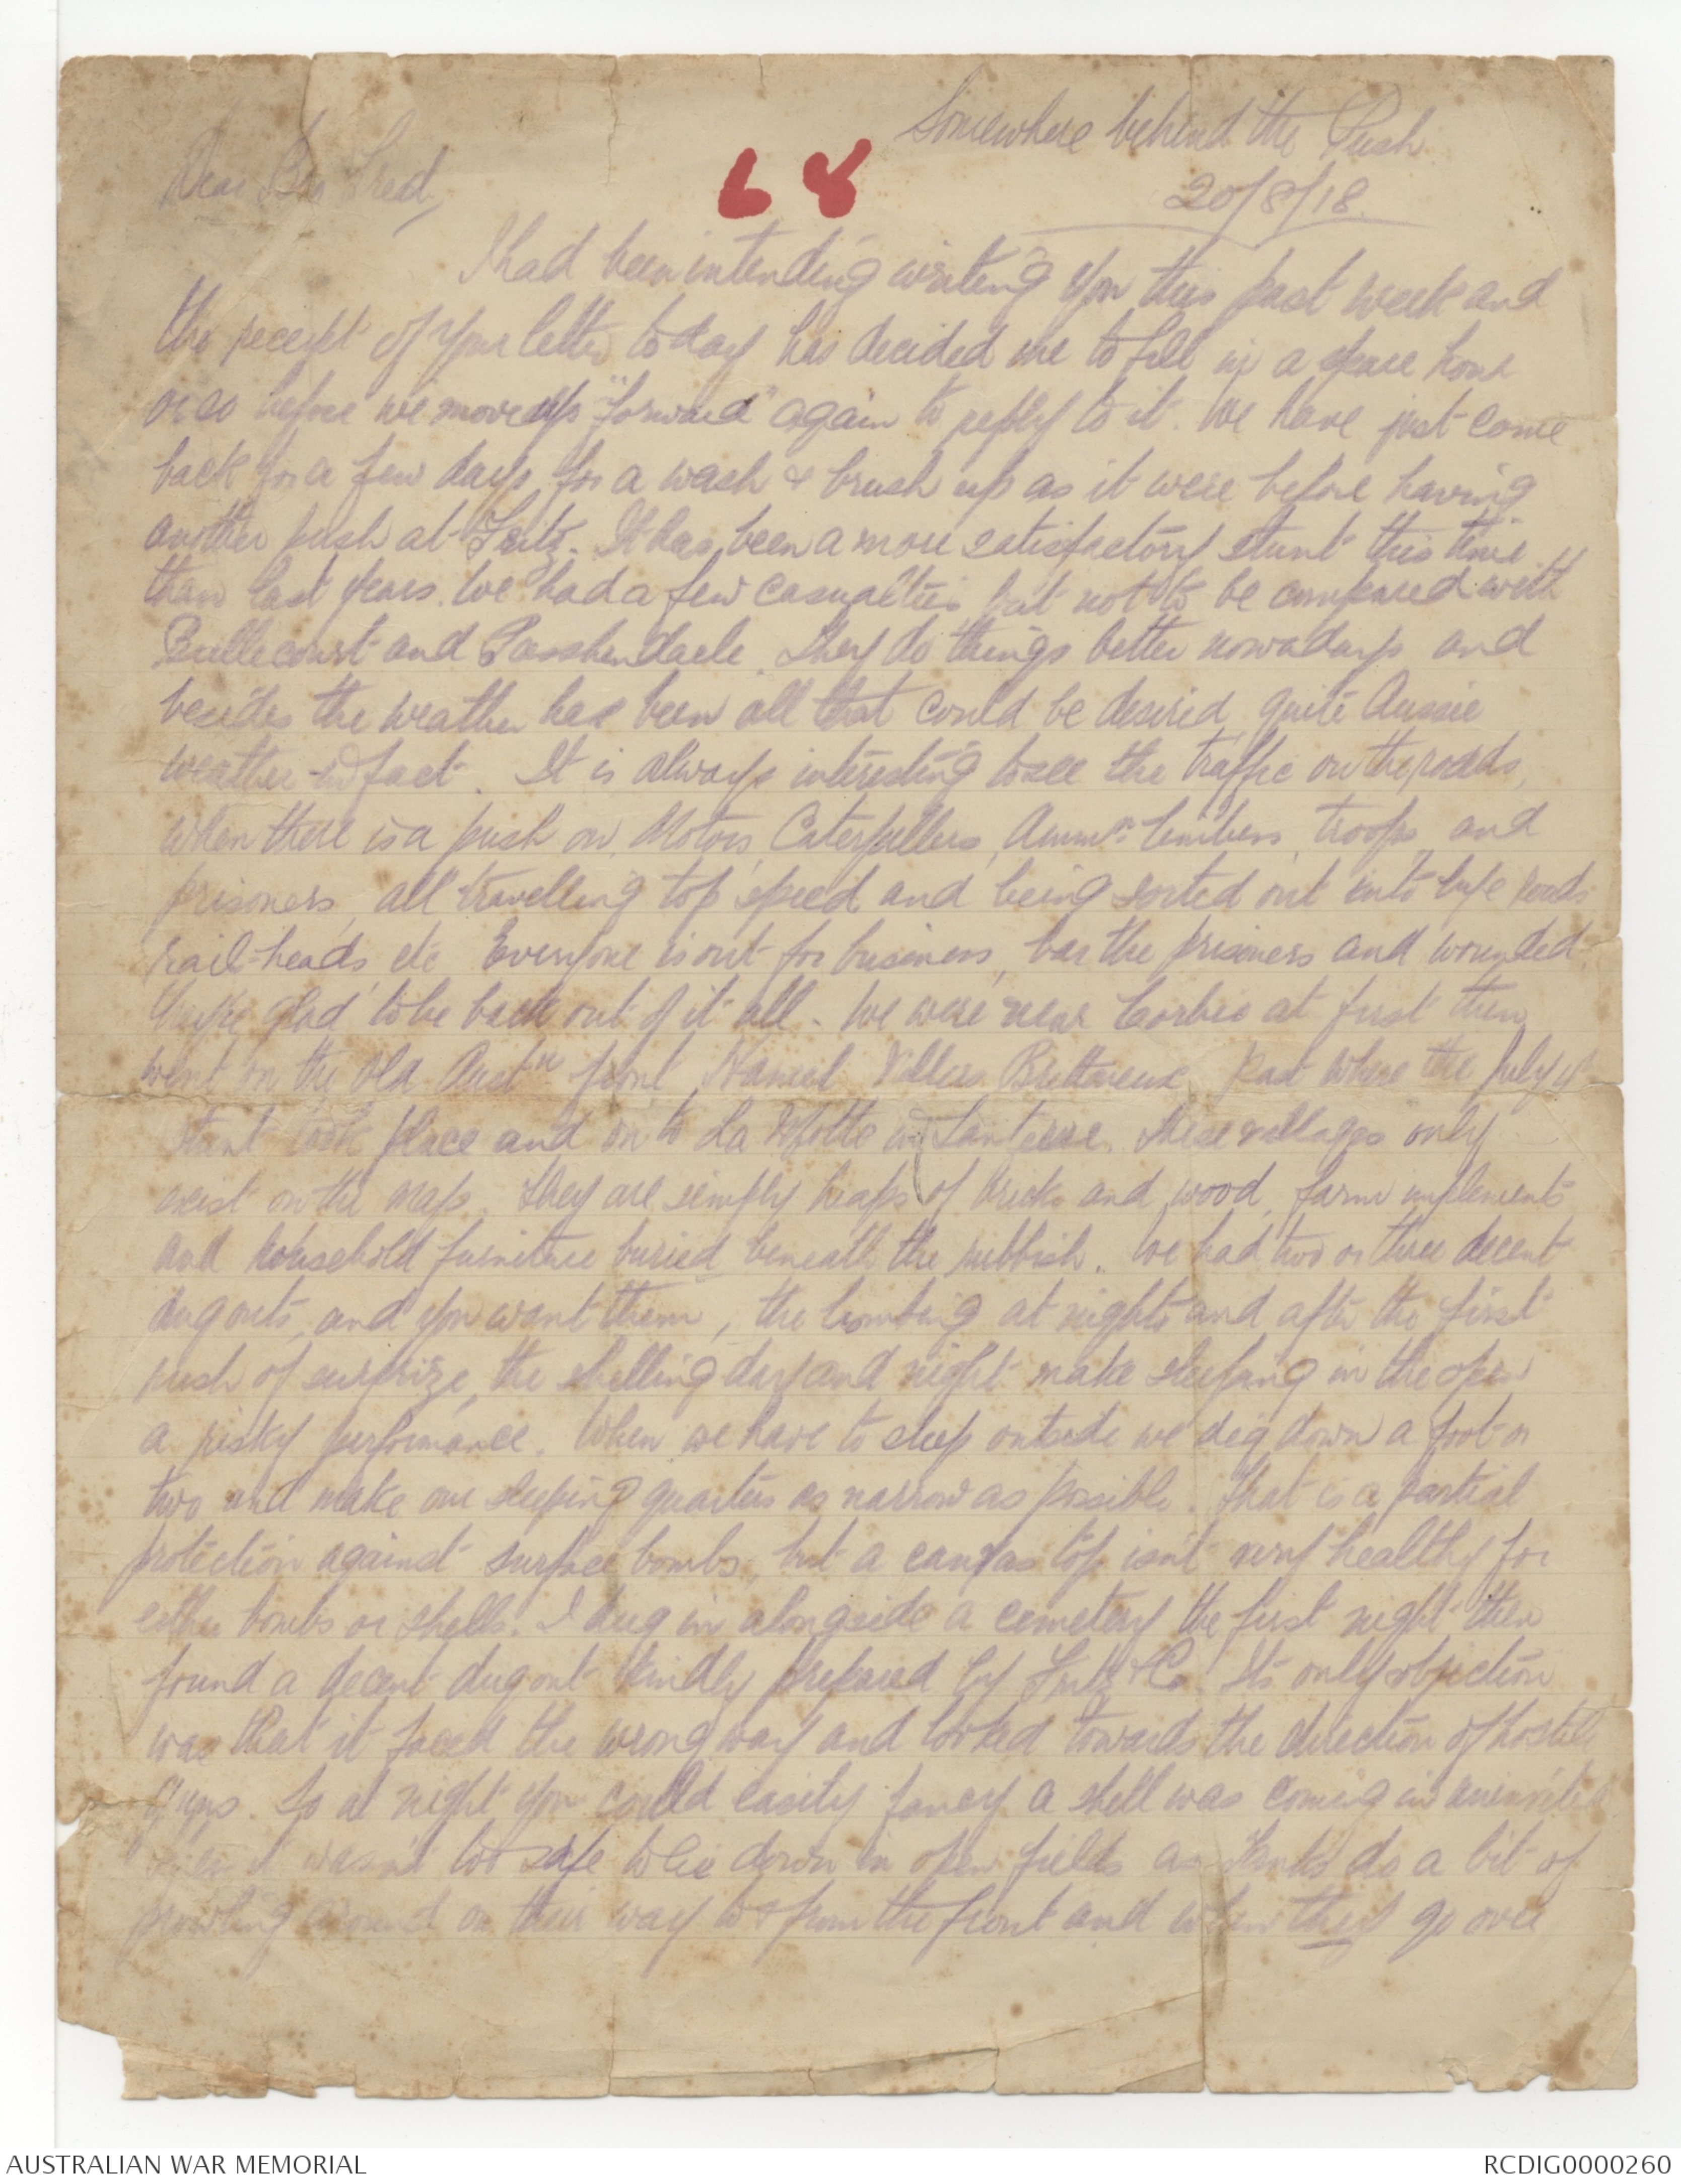 Somewhere behind the Push
68
20/8/18
Dear Bro Fred,
I had been intending writing you this past week and
the receipt of your letter today has decided me to fill in a spare hour
or so before we move up "forward" again to reply to it. We have just come
back for a few days for a wash & brush up as it were before having
another push at Fritz. It has been a more satisfactory stunt this time
than last years. We had a few casualties but not to be compared with
Bullecourt and Passchendaele. They do things better nowadays and
besides the weather has been all that could be desired, quite Aussie
weather in fact. It is always interesting to see the traffic on the roads,
when there is a push on, Motors, Caterpillers, Ammn limbers, troops, and
prisoners, all travelling top speed and being sorted out into roads
rail-heads etc Everyone is out for business, bar the prisoners and wounded
glad to be back out of it all. We were near Corbie at first then
went on the old Austn front, Hamel Villers Brettoneux, past where the July 4
stunt took place and on to La Motte in Santerre. These villages only
exist on the map. They are simply heaps of bricks and wood, farm implements
and household furniture buried beneath the rubbish. We had two or three decent
dugouts, and you want them, the bombing at nights and after the first
rush of surprize, the shelling day and night make sleeping in the open
a risky performance. When we have to sleep outside we dig down a foot or
two and make our sleeping quarters as narrow as possible. That is a partial
protection against surface bombs, but a canvas top isn't very healthy for
either bombs or shells. I dug in alongside a cemetery the first night then
found a decent dugout kindly prepared by Fritz & Co. Its only objection
was that it faced the wrong way and looked towards the direction of hostile
guns. So at night you could easily fancy a shell was coming in uninvited
wasn't too safe to lie down in open fields as Tanks do a bit of
prowling around on their way to & from the front and when they go over
AUSTRALIAN WAR MEMORIAL
RCDIG0000260